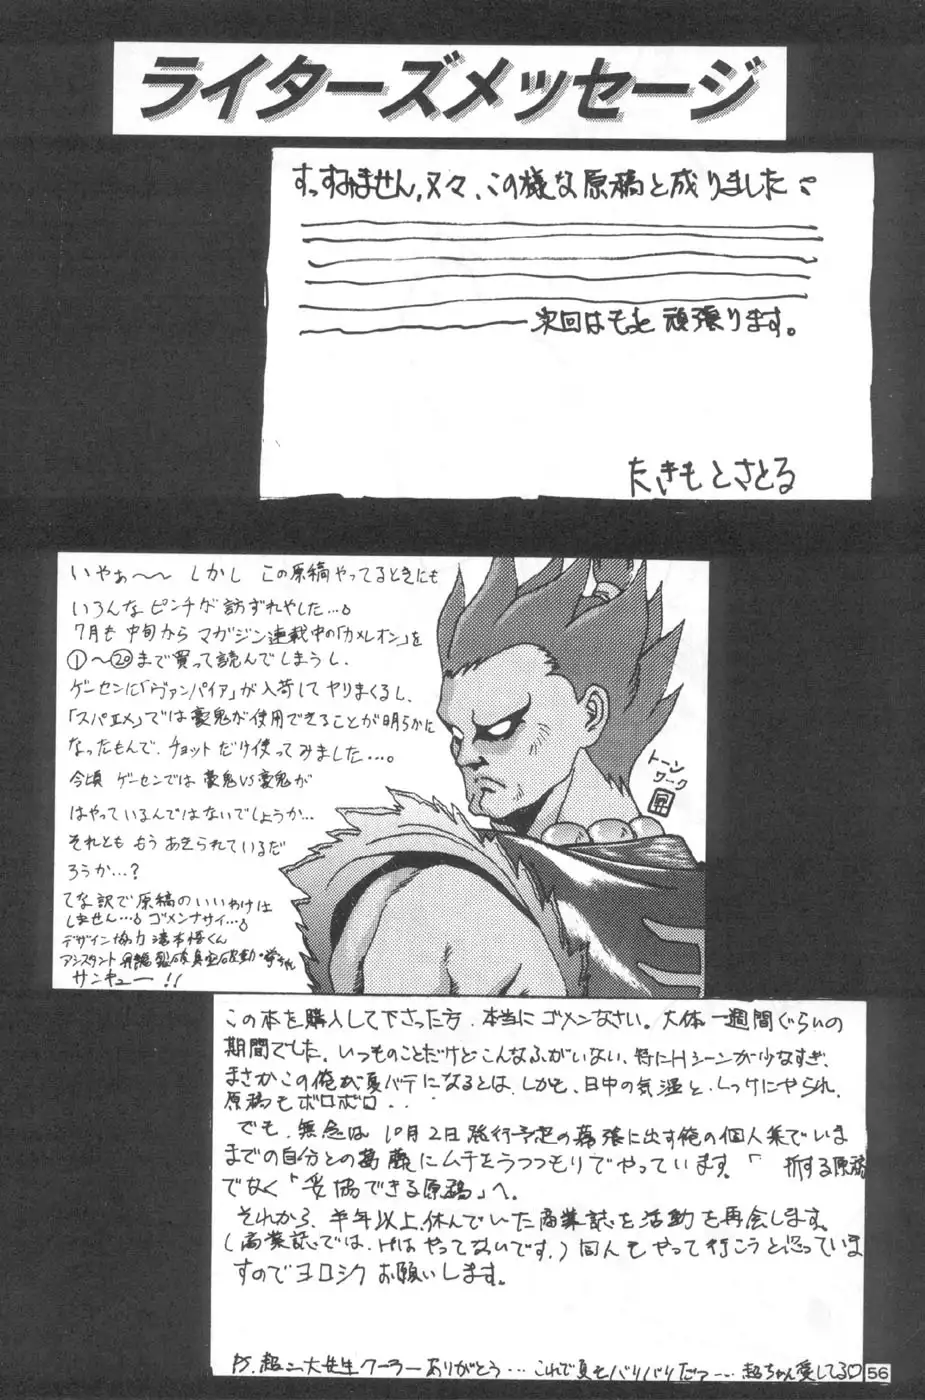 ライターズメッセージ
すっすみません,又々、この様な原稿と成りました
次回はもっと頑張ります。
たきもとさとる
いやぁ〜〜 しかし この原稿やってるときにも
いろんなピンチが訪ずれやした…。
7月も中旬からマガジン連載中の「カメレオン」を
①〜⑳まで買って読んでしまうし、
ゲーセンに「ヴァンパイア」が入荷してヤリまくるし、
「スパエメ」では豪鬼が使用できることが明らかに
なったもんで、チョットだけ使ってみました…。
今頃 ゲーセンでは豪鬼VS豪鬼が
はやっているんではないでしょうか…
それとも もう あきられているだ
ろうか…?
てな訳で原稿のいいわけは
しません…。ゴメンナサイ…。
デザイン協力 滝本悟くん
アシスタント 昇龍裂破真空波動拳ちゃん
サンキュー!!
トーン
ワーク
昇
この本を購入して下さった方、本当にゴメンなさい。大体一週間ぐらいの
期間でした。いつものことだけどこんなふがいない、特にHシーンが少なすぎ、
まさかこの俺が夏バテになるとは、しかも、日中の気温と、しっけにやられ、
原稿もボロボロ・・
でも、無念は10月2日発行予定の幕張に出す俺の個人集でいま
までの自分との葛藤にムチをうつつもりでやっています。「 折する原稿
でなく「妥協できる原稿」へ。
それから、半年以上、休んでいた商業誌を活動を再会します。
(商業誌では、Hはやってないです。)同人もやって行こうと思っていま
すのでヨロシクお願いします。
P.S. 超二大先生クーラーありがとう…これで夏もバリバリだっ…超ちゃん愛してる♡
56